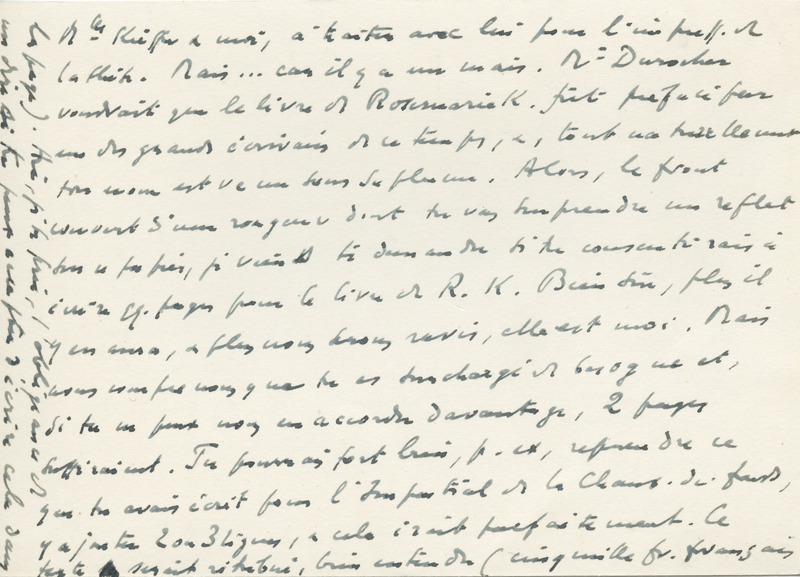 Mlle Kieffer a moi, à traiter avec lui pour l'impress. de
la thèse. Mais... car il y a un mais. Mr Durocher
voudrait que le livre de Rosemarie K. fût préfacé par
un des grands écrivains de ce temps, et, tout naturellement
ton nom est venu sous sa plume. Alors, le front
couvert d'une rougeur dont tu vas surprendre un reflet
sur ce papier, je viens te demander si tu consentirais à
écrire qq. pages pour le livre de R. K. Bien sûr, plus il
y en aura, et plus nous serons ravis, elle et moi. Mais
nous comprenons que tu es surchargé de besogne et,
si tu ne peux nous en accorder davantage, 2 pages
suffiraient. Tu pourrais fort bien, p. ex., reprendre ce
que tu avais écrit pour l'Impartial de la Chaux-de-Fonds,
y ajouter 2 ou 3 lignes, et cela irait parfaitement. Ce
texte serait rétribué, bien entendu (cinq mille fr. français
les pages). Aie, je te prie, l'obligeance de
me dire si tu peux accepter d'écrire cela dans